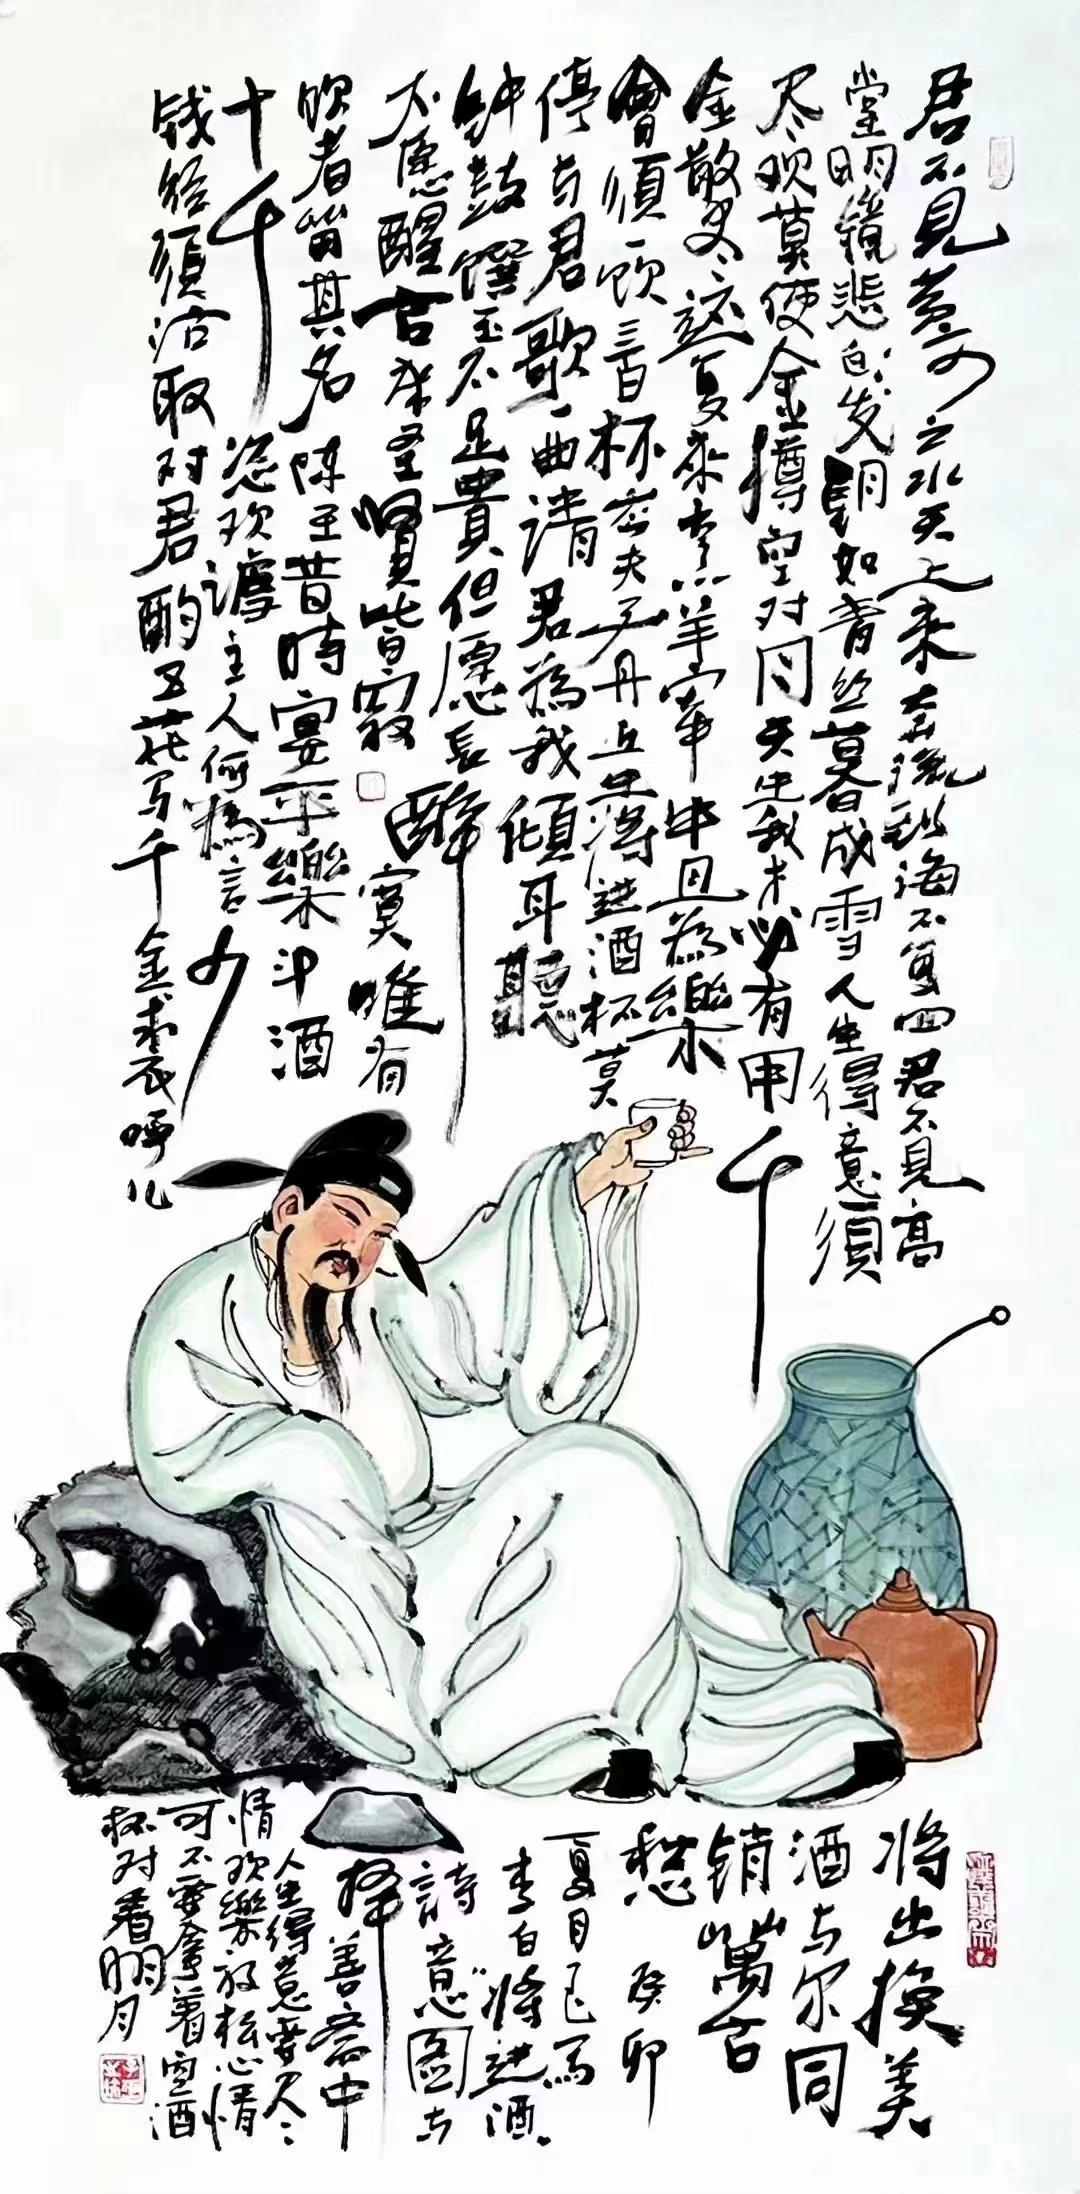 君不见黄河之水天上来奔流到海不复回君不见高
堂明镜悲白发朝如青丝暮成雪人生得意须
尽欢莫使金樽空对月天生我才必有用千
金散尽还复来烹羊宰牛且為樂
會須一饮三百杯岑夫子丹丘生将进酒杯莫
停与君歌一曲请君為我倾耳聽
钟鼓馔玉不足貴但愿长醉
不愿醒古来圣贤皆寂寞唯有
饮者留其名陈王昔時宴平樂斗酒
十千恣欢谑主人何為言少
钱径须沽取对君酌五花马千金裘呼儿
将出换美
酒与尔同
销萬古
愁 癸卯
夏月已写
李白“将进酒”
詩意图与
择善斋中
人生得意要尽
情欢樂放松心情
可不要拿着空酒
杯对着明月